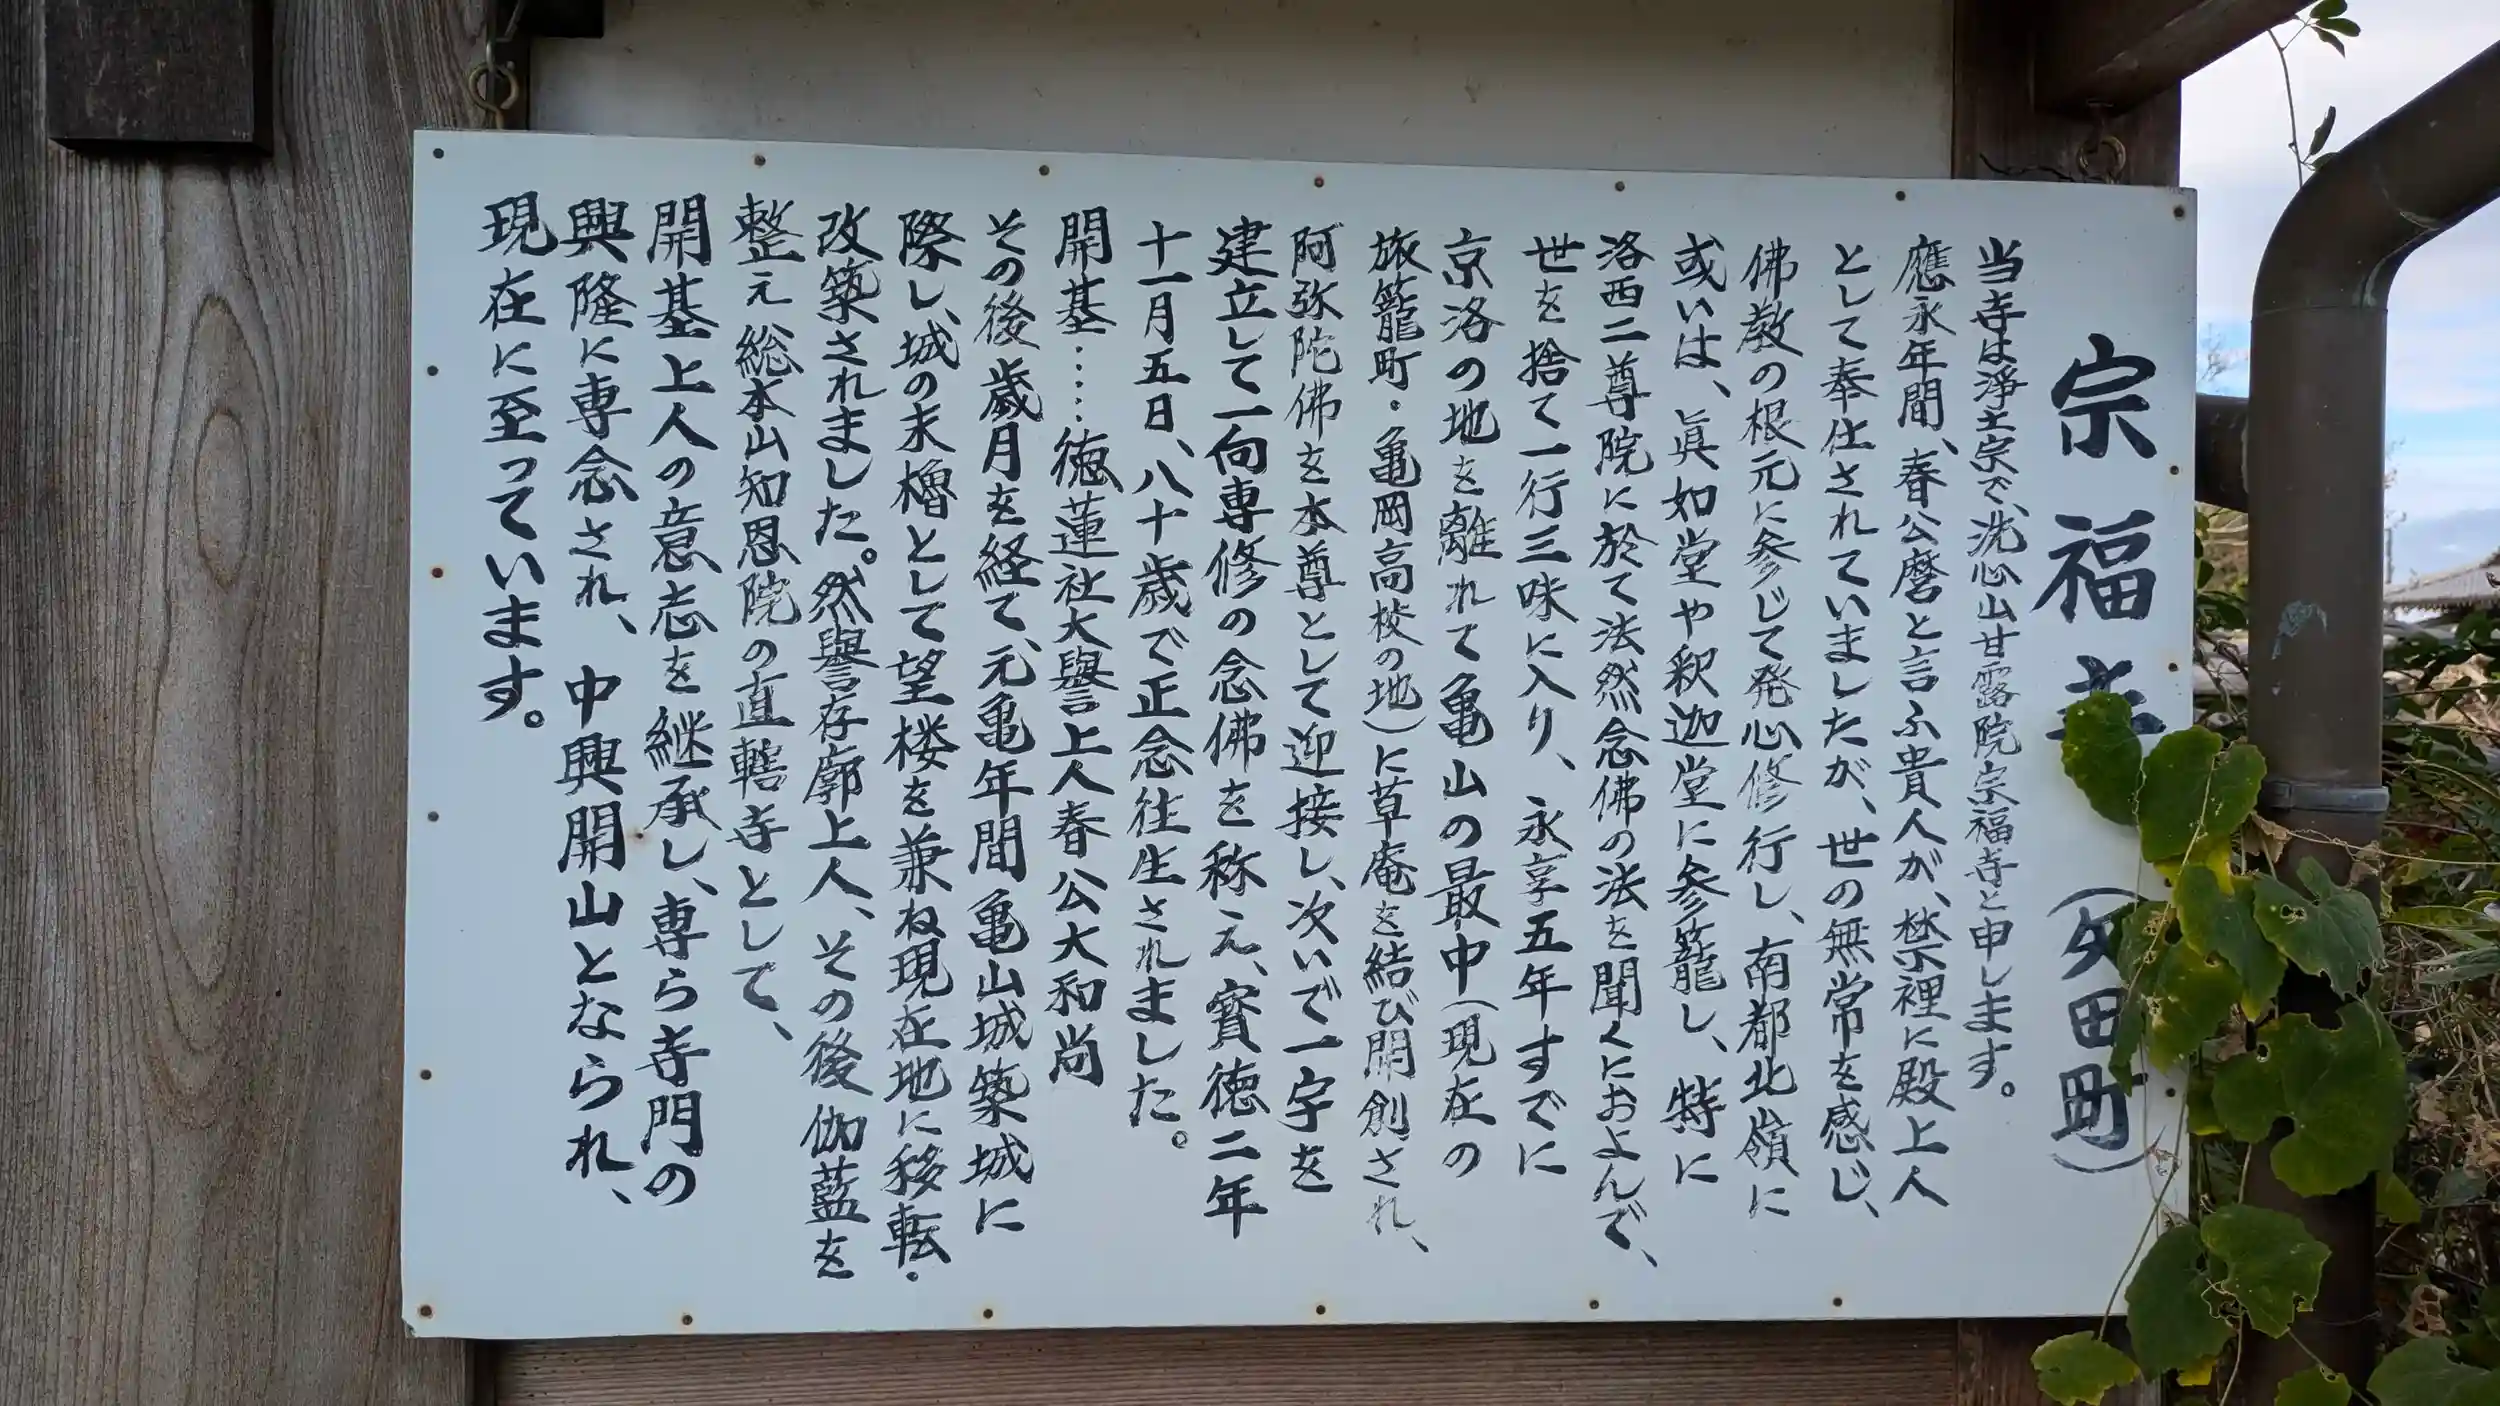 宗福寺 (矢田町)
当寺は淨土宗で、洗心山甘露院宗福寺と申します。
應永年間、春公麿と言ふ貴人が、禁裡に殿上人
として奉仕されていましたが、世の無常を感じ、
佛教の根元に参じて発心修行し、南都北嶺に
或いは、眞如堂や釈迦堂に参籠し、特に
洛西二尊院に於て法然念佛の法を聞くにおよんで、
世を捨て一行三昧に入り、永享五年すでに
京洛の地を離れて亀山の最中(現在の
旅籠町・亀岡高校の地)に草庵を結び開創され、
阿弥陀佛を本尊として迎接し、次いで一宇を
建立して一向専修の念佛を称え、寳徳二年
十一月五日、八十歳で正念往生されました。
開基……徳蓮社大譽上人春公大和尚
その後歳月を経て、元亀年間亀山城築城に
際し、城の末櫓として望楼を兼ね現在地に移転・
改築されました。然譽存廓上人、その後伽藍を
整え総本山知恩院の直轄寺として、
開基上人の意志を継承し、専ら寺門の
興隆に専念され、中興開山となられ、
現在に至っています。